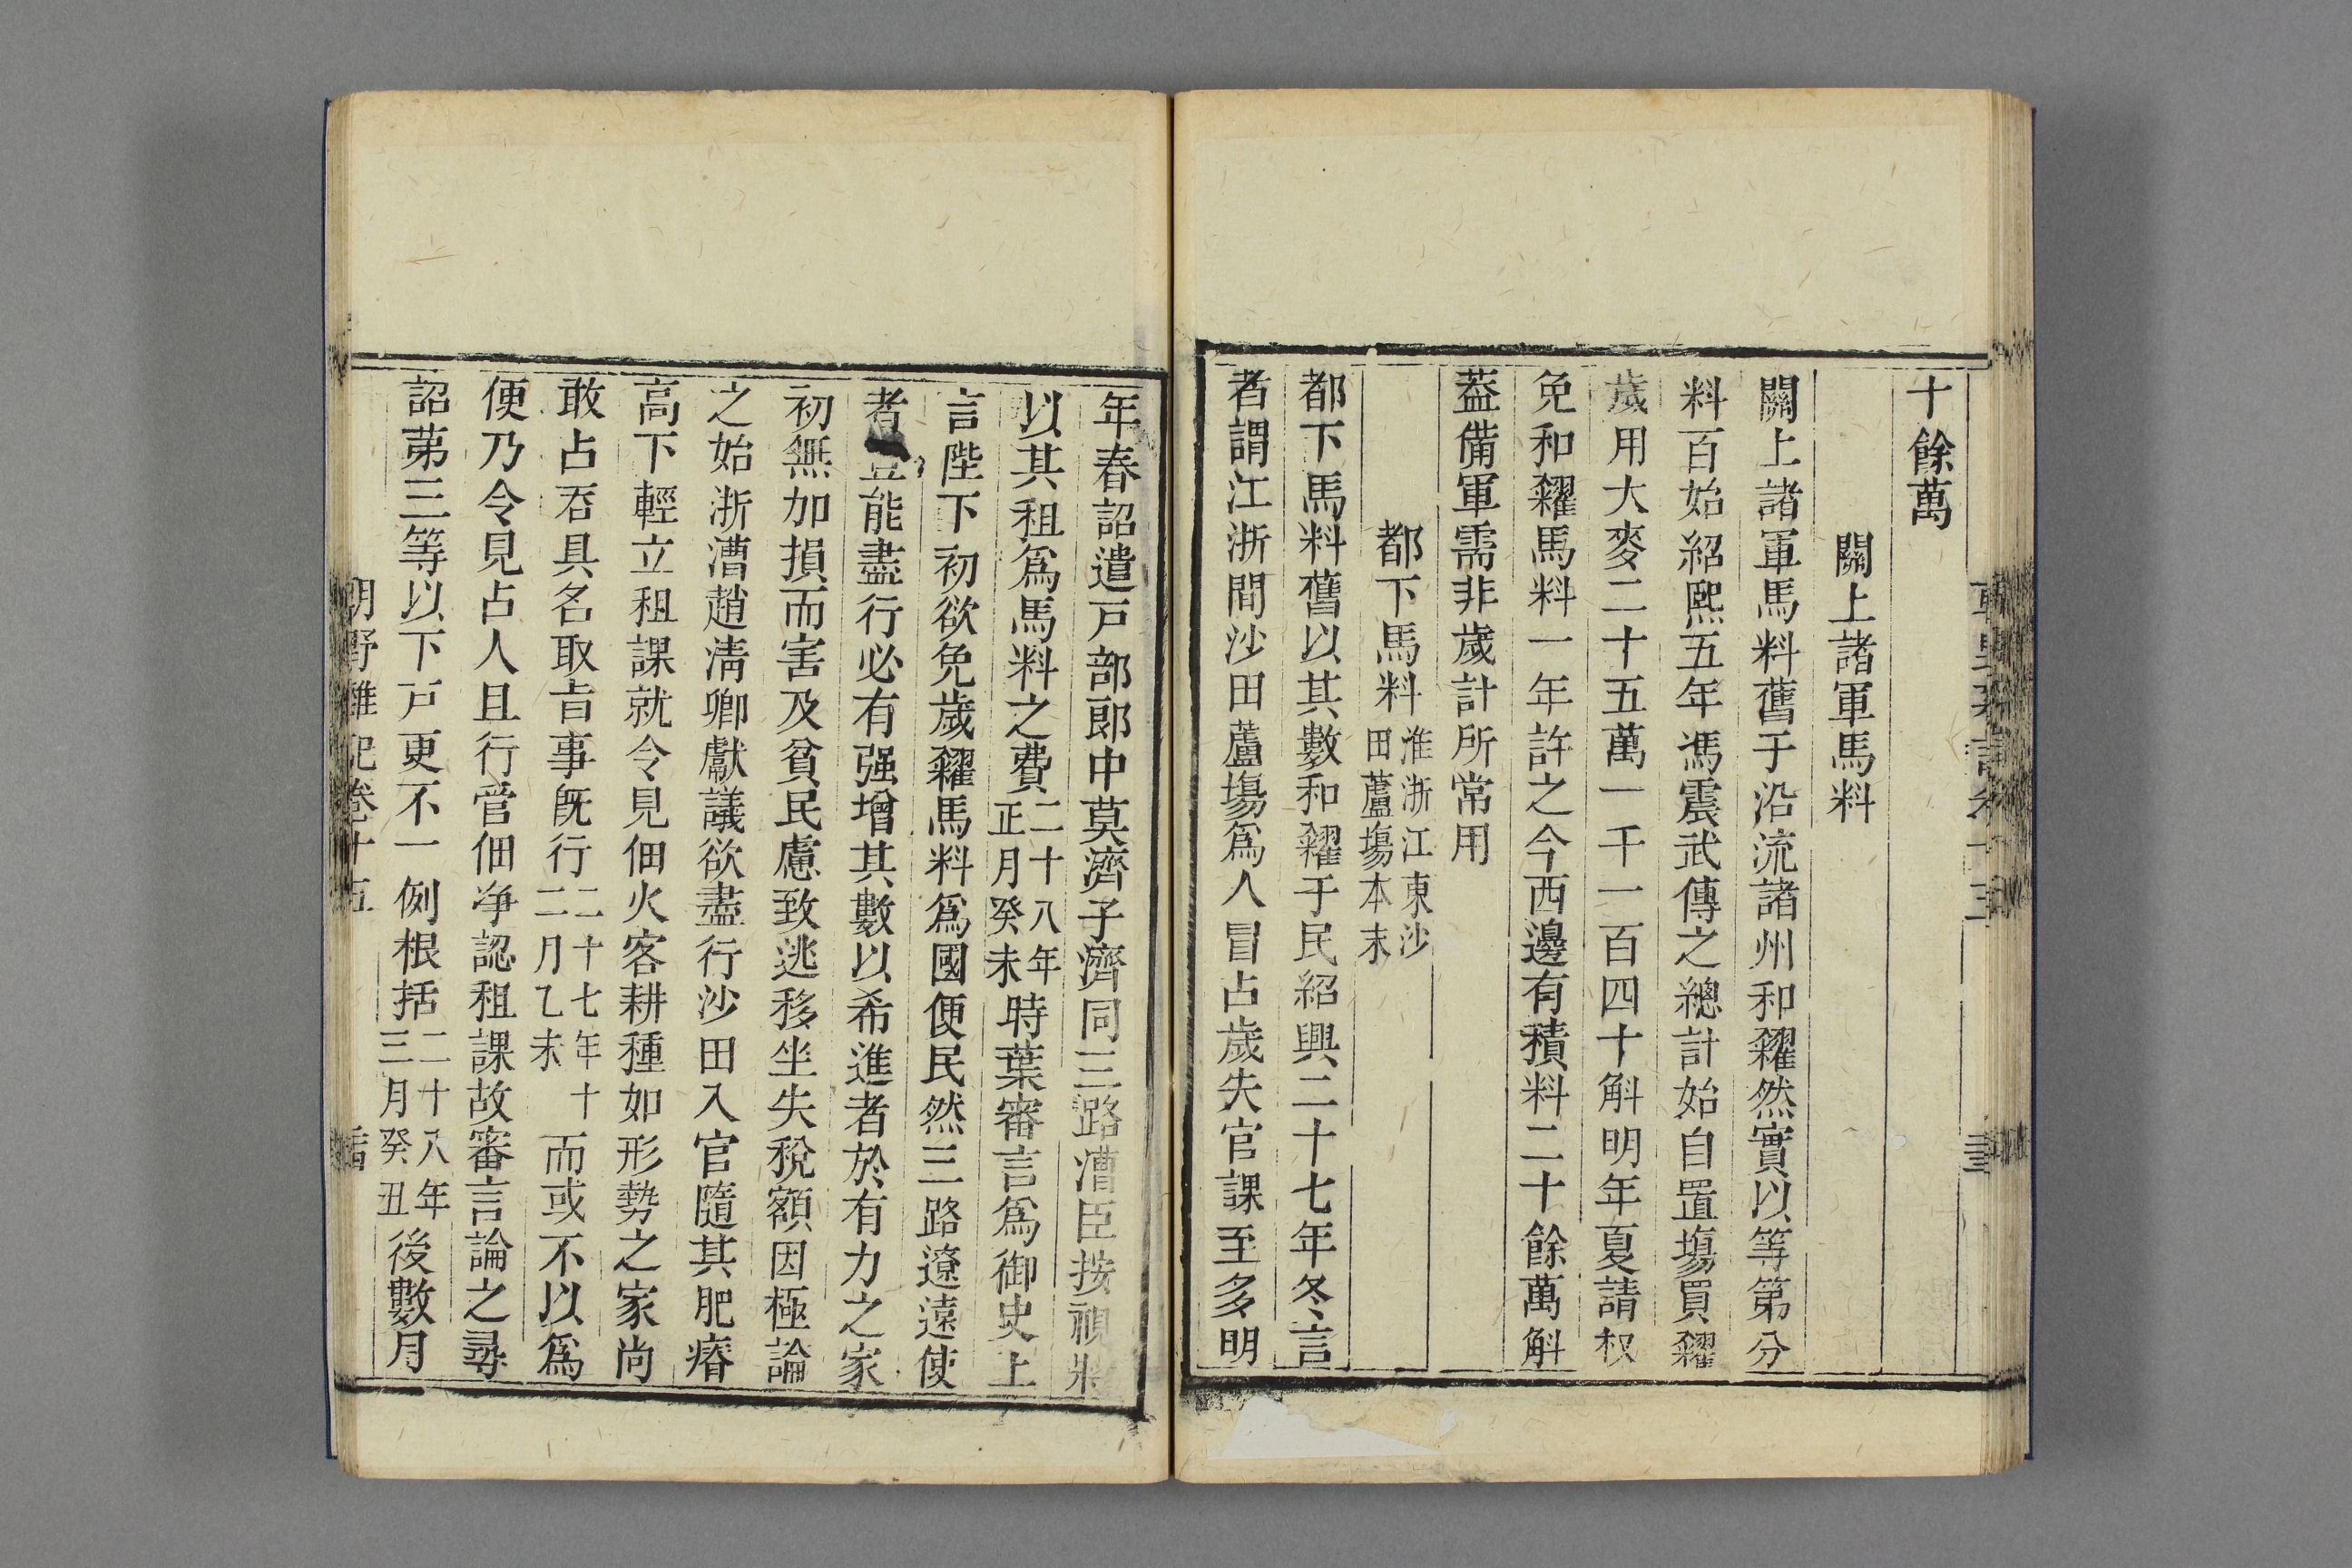 十餘萬
關上諸軍馬料
關上諸軍馬料舊于沿流諸州和糴然實以等第分
料百始紹熙五年馮震武傳之總計始自置塲買糴
歲用大麥二十五萬一千一百四十斛明年夏請权
免和糴馬料一年許之今西邊有積料二十餘萬斛
葢備軍需非歲計所常用
都下馬料淮浙江東沙田蘆塲本末
都下馬料舊以其數和糴于民紹興二十七年冬言
者謂江浙間沙田蘆塲爲人冒占歲失官課至多明
年春詔遣戸部郎中莫濟子濟同三路漕臣按視將
以其租爲馬料之費二十八年正月癸未時葉審言爲御史上
言陛下初欲免歲糴馬料爲國便民然三路遼遠使
者豈能盡行必有强增其數以希進者於有力之家
初無加損而害及貧民慮致逃移坐失稅額因極論
之始浙漕趙淸卿獻議欲盡行沙田入官隨其肥瘠
高下輕立租課就令見佃火客耕種如形勢之家尚
敢占吞具名取旨事旣行二十七年十二月乙未而或不以爲
便乃令見占人且行管佃净認租課故審言論之尋
詔苐三等以下戸更不一例根括二十八年三月癸丑後數月
朝野雜記卷十五